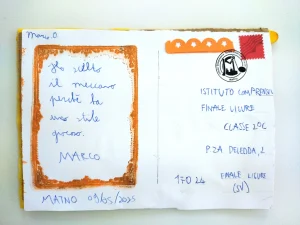 Marco D.
Ho scelto
il meccano
perché ha
uno stile
giocoso.
MARCO
MATINO 09/05/2025
ISTITUTO COMPRENSI
FINALE LIGURE
CLASSE 2°C
P.ZA DELEDDA, 2
17024 FINALE LIGURE
(SV)